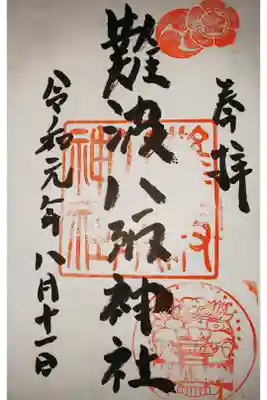 奉拝
難波八阪神社
令和元年八月十一日